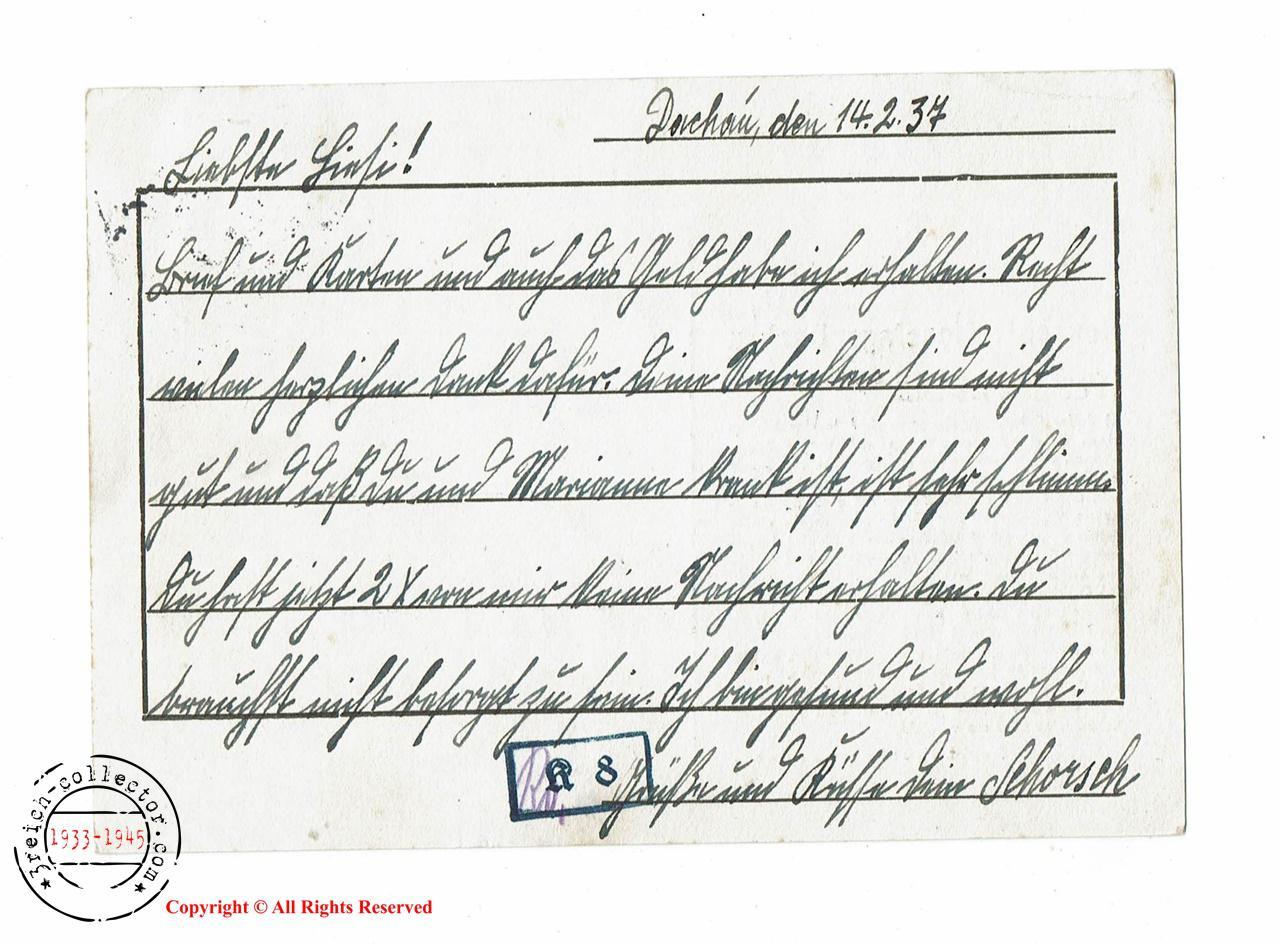 Dachau, den 14.2.37
Liebste Liesi!
Brief und Karten und auch das Geld habe ich erhalten. Recht
vielen herzlichen Dank dafür. Deine Nachrichten sind nicht
gut und daß Du und Marianne krank ist, ist sehr schlimm.
Du hast jetzt 2 X von mir keine Nachricht erhalten. Du
brauchst nicht besorgt zu sein. Ich bin gesund und wohl.
K 8
Grüße und Küsse Dein Schorsch
3reich-collector.com
1933-1945
Copyright © All Rights Reserved